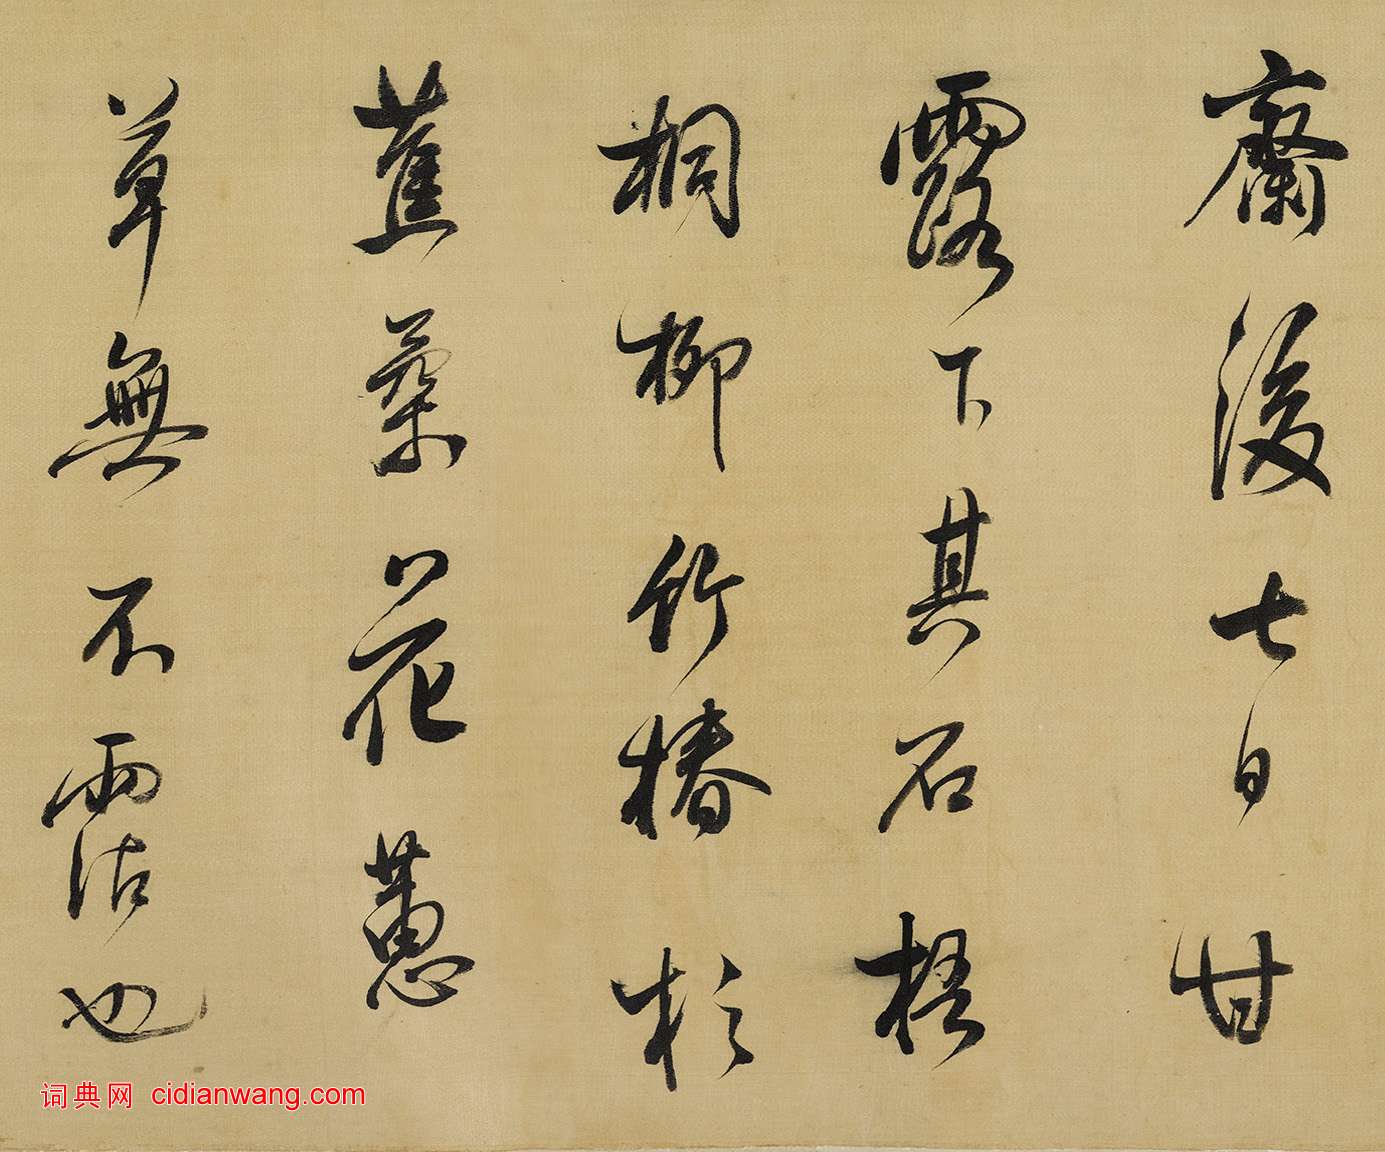 齋後七日甘
露下其石梧
桐柳竹椿杉
蕉花蕙
草無不霑也
词典网 cidianwang.com